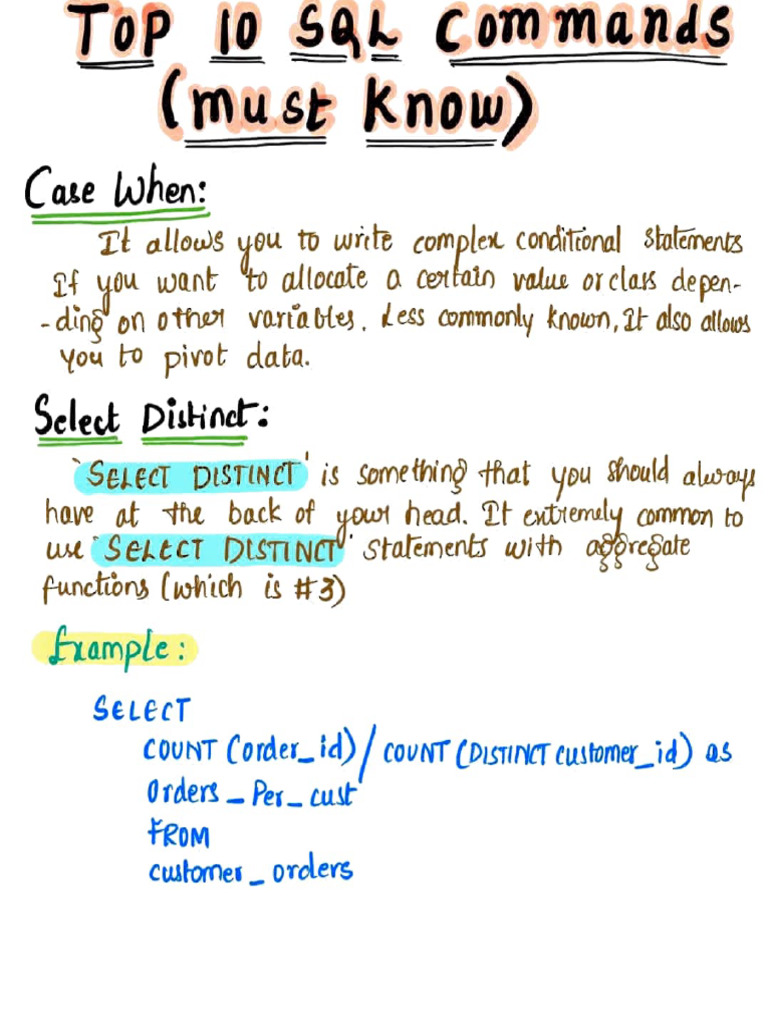 Top 10 SQL Commands
(must know)
Case When:
It allows you to write complex conditional statements
If you want to allocate a certain value or class depen-
-ding on other variables. Less commonly known, It also allows
you to pivot data.
Select Distinct:
`SELECT DISTINCT' is something that you should always
have at the back of your head. It extremely common to
use `SELECT DISTINCT' statements with aggregate
functions (which is #3)
Example:
SELECT
COUNT (order_id) / COUNT (DISTINCT customer_id) as
Orders_Per_cust
FROM
customer_orders